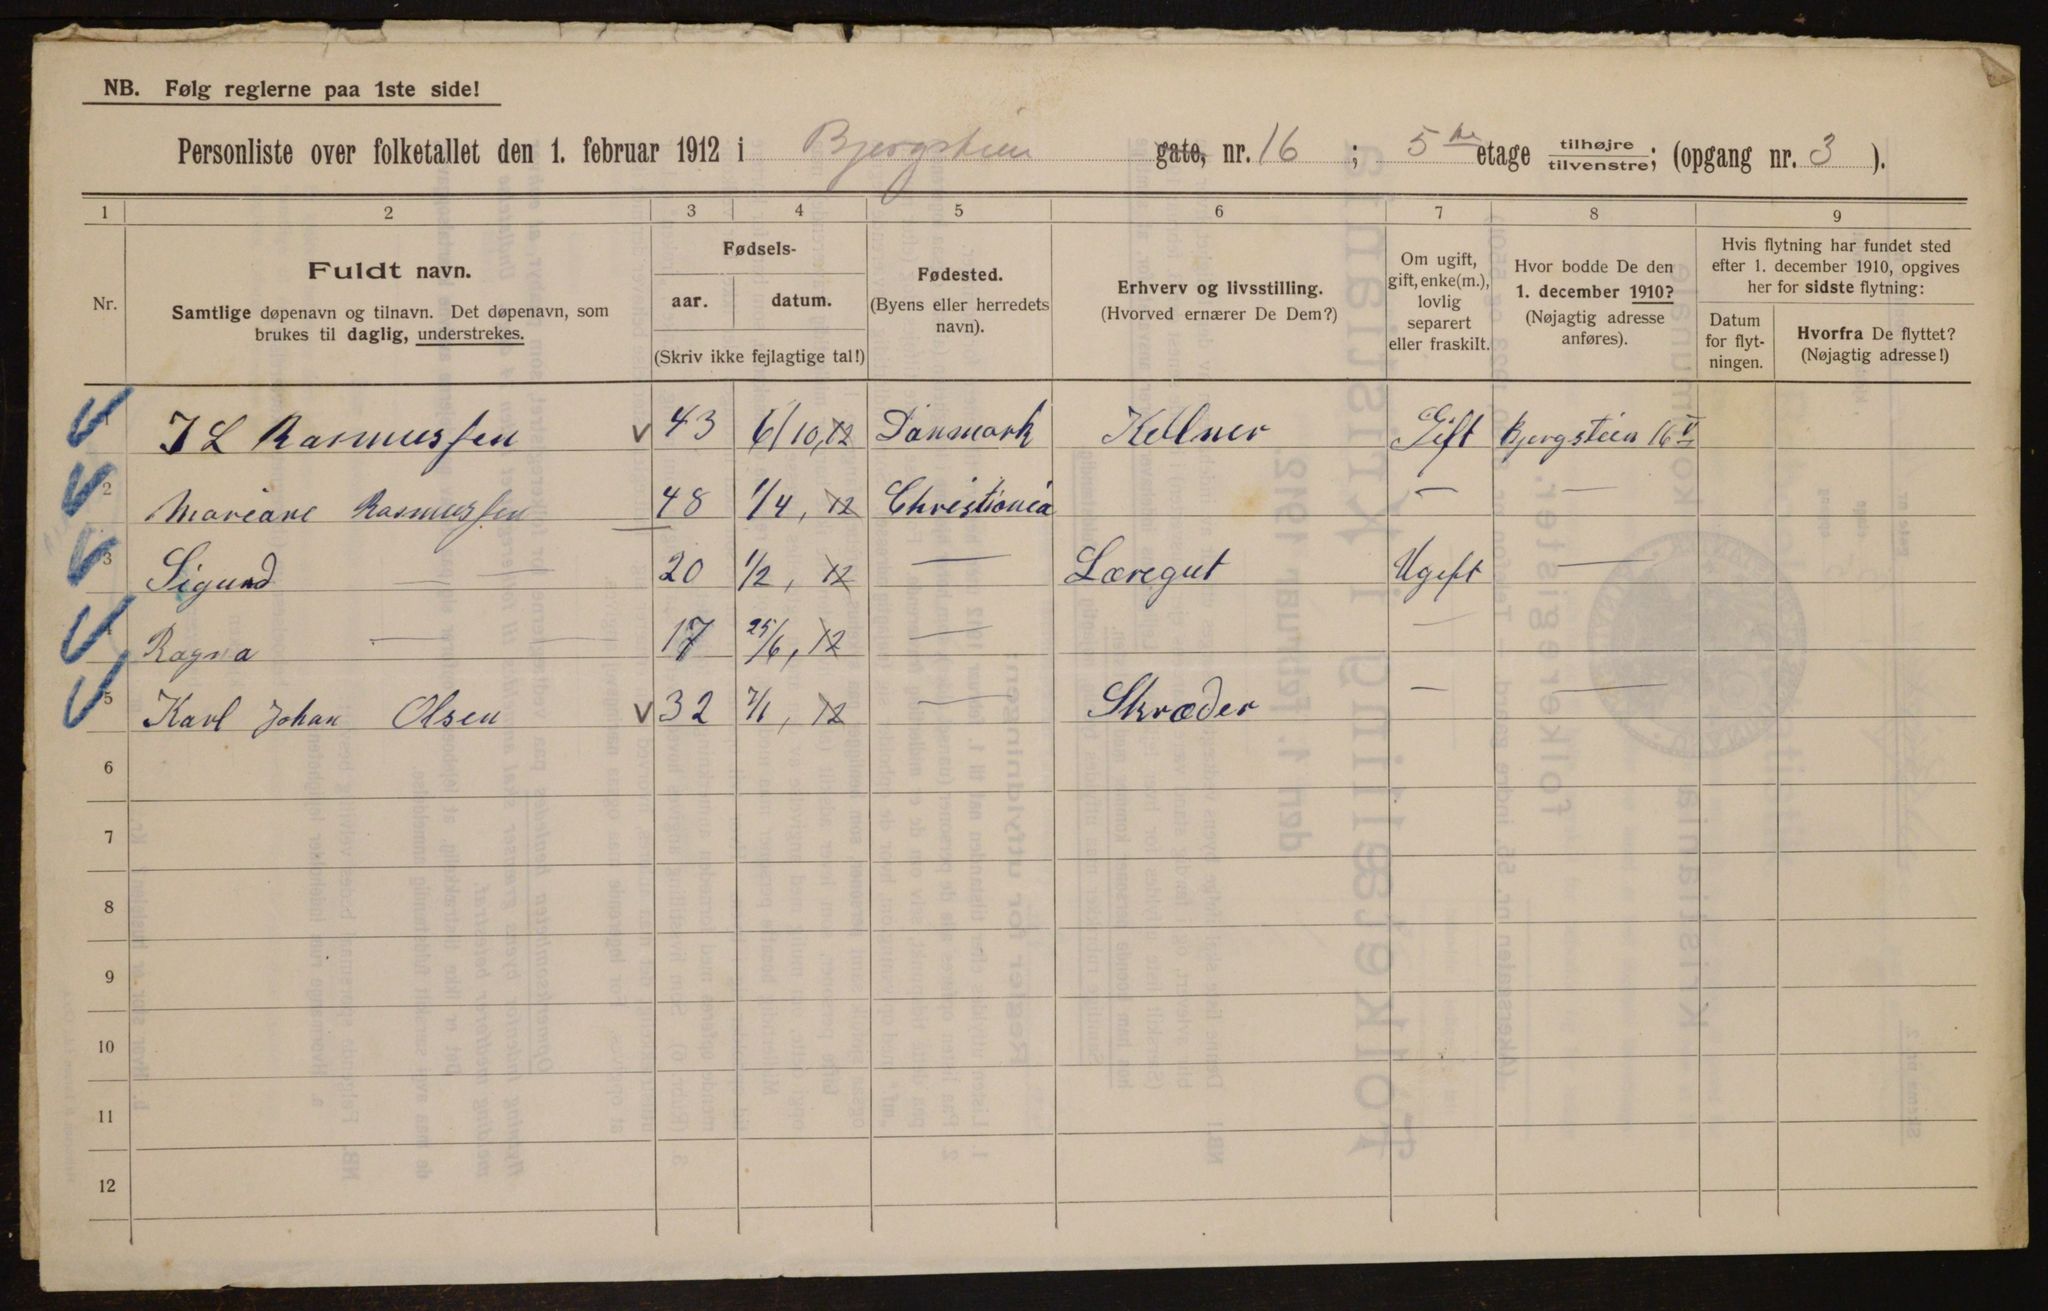 NB. Følg reglerne paa 1ste side!
Personliste over folketallet den 1. februar 1912 i Bjergstien gate, nr. 16 ; 5te etage tilhøjre / tilvenstre; (opgang nr. 3 ).
1 2 3 4 5 6 7 8 9
Nr.
Fuldt navn.
Samtlige døpenavn og tilnavn. Det døpenavn, som
brukes til daglig, understrekes.
Fødsels-
aar. datum.
(Skriv ikke fejlagtige tal!)
Fødested.
(Byens eller herredets
navn).
Erhverv og livsstilling.
(Hvorved ernærer De Dem?)
Om ugift,
gift, enke(m.),
lovlig
separert
eller fraskilt.
Hvor bodde De den
1. december 1910?
(Nøjagtig adresse
anføres).
Hvis flytning har fundet sted
efter 1. december 1910, opgives
her for sidste flytning:
Datum
for flyt-
ningen.
Hvorfra De flyttet?
(Nøjagtig adresse!)
1 J L Rasmussen 43 6/10, 12 Danmark Kellner Gift Bjergstien 16 V
2 Mariane Rasmussen 48 1/4, 12 Christiania — —
3 Sigurd — — 20 1/2, 12 — Læregut Ugift —
4 Ragna — — 17 25/6, 12 — —
5 Karl Johan Olsen 32 7/1, 12 — Skræder — —
6
7
8
9
10
11
12